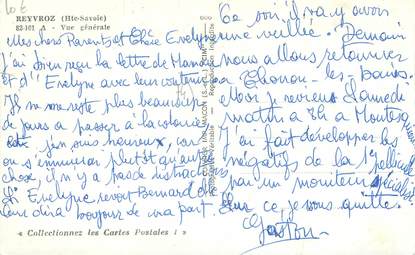 REYVROZ (Hte-Savoie)
82-101 A - Vue générale
Mes chers Parents et Chère Evelyne
J'ai bien reçu la lettre de Maman
et d'Evelyne avec leur contenu
Il ne me reste plus beaucoup
de jours a passer à la colonie
j'en suis heureux, car
on s'ennuierai plutôt qu'autre
chose, il n'y a pas de distractions
Si Evelyne revoit Bernard elle
leur dira bonjour de ma part.
« Collectionnez les Cartes Postales ! »
Ce soir, il va y avoir
une veillée. Demain
nous allons retourner
a Thonon-les-bains.
Moi je reviens Samedi
matin a 8h a
J'ai fait développer les
négatifs de la 1ère pellicule
par un moniteur spécialisé
Sur ce je vous quitte.
Gaston